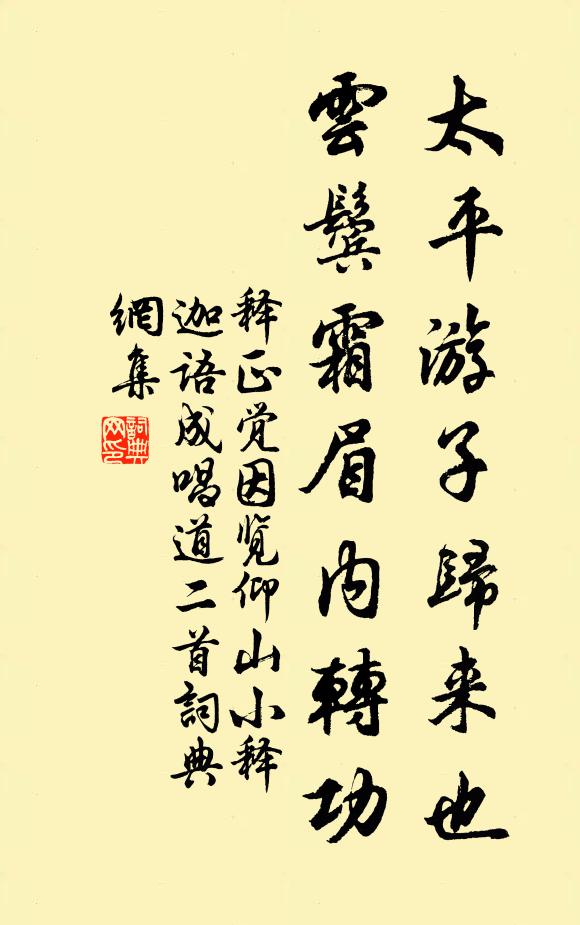 太平游子歸来也
雲鬓霜眉内轉功
释正觉因览仰山小释
迦语成唱道二首詞典
網集
詞典
网印